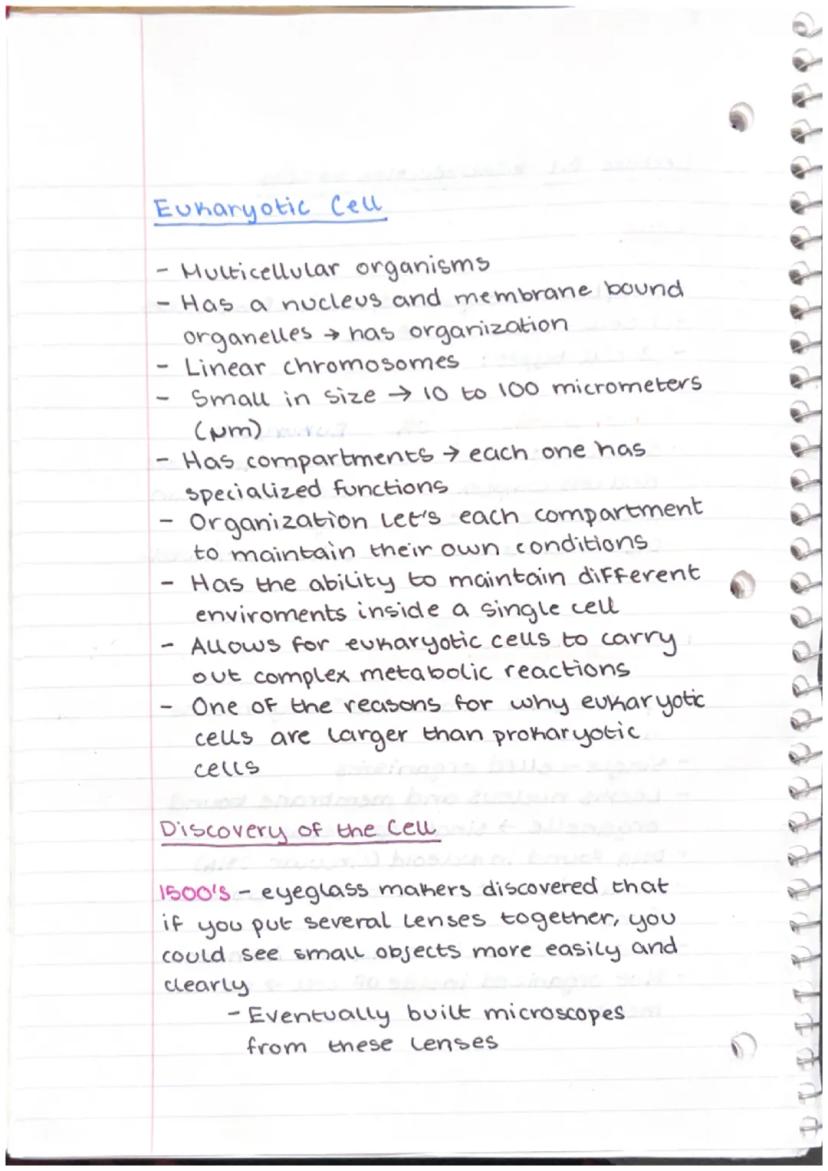 Eukaryotic Cell
- Multicellular organisms
- Has a nucleus and membrane bound
organelles → has organization
- Linear chromosomes
- Small in size → 10 to 100 micrometers
(μm)
- Has compartments → each one has
specialized functions
- Organization let's each compartment
to maintain their own conditions
- Has the ability to maintain different
enviroments inside a single cell
- Allows for eukaryotic cells to carry
out complex metabolic reactions
- One of the reasons for why eukaryotic
cells are larger than prokaryotic
cells
Discovery of the Cell
1500's - eyeglass makers discovered that
if you put several lenses together, you
could see small objects more easily and
clearly
- Eventually built microscopes
from these lenses